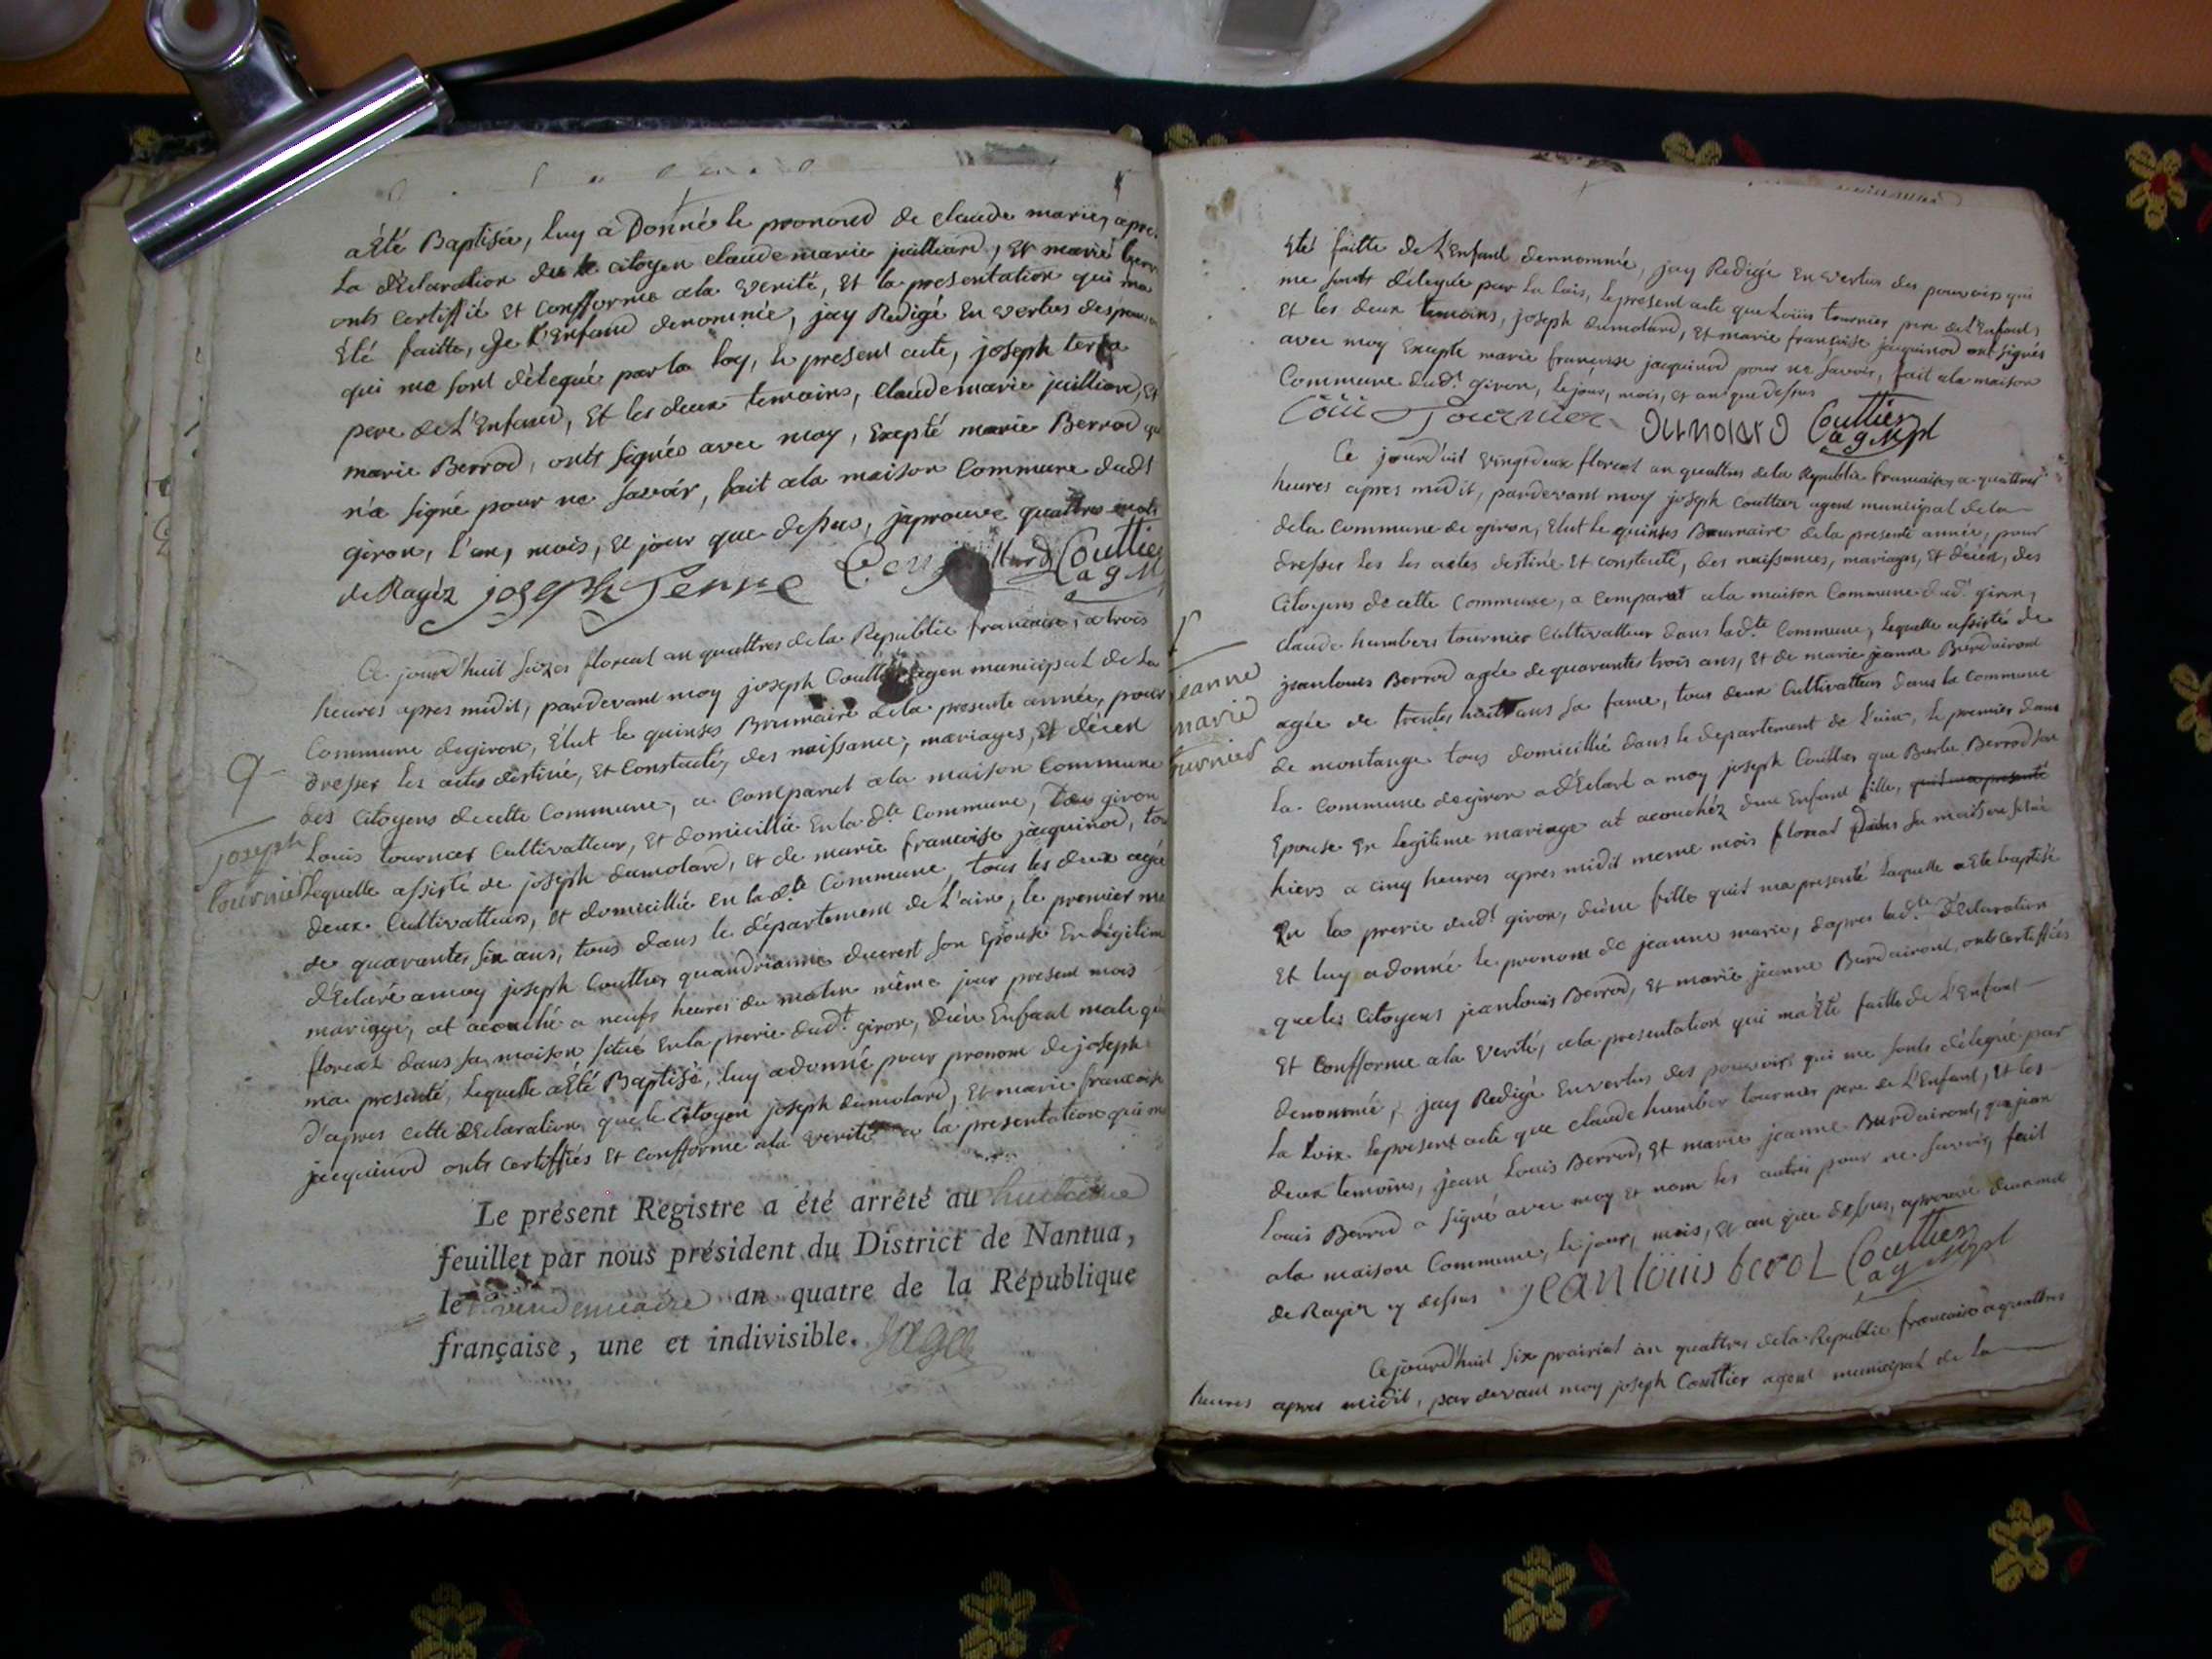 a Été Baptisée, luy à Donné le pronond de claude marie, apre
La dÉclaration du le citoyen claude marie juilliard, Et marie Berr
onts certiffié Et confforme ala verité, Et la presentation qui ma
Été faitte, de l'Enfand denommée, jay Redigé En vertus des pouv
qui me sont délegué par la loy, le present acte, joseph
pere de L'Enfand, Et les deux temoins, Claude marie juilliard, Et
marie Berrod, onts signés avec moy, Exepté marie Berrod qu
n'a signé pour ne savoir, fait ala maison Commune dudt
giron, l'an, mois, Et jour que dessus, japrouve quattre mots
de Rayéz joseph Coutties
a g M
Ce jourd'huit saizes floreal an quattres de la Republic francaise, a trois
heures apres midit, pardevant moy joseph Coutties agen municipal de La
Commune de giron, Élut le quinses Brumaire de la presente année, pour
dresser les actes destiné, Et Constaté, des naissance, mariages, Et décéd
des Citoyens de cette Commune, a comparut ala maison Commune
Louis tournier Cultivatteur, Et domicillié En la dte Commune, giron
Lequelle assisté de joseph dumolard, Et de marie francoise jacquinod, tou
deux Cultivatteurs, Et domicillié En la dte Commune, tous les deux agée
de quarantes six ans, tous dans le département de L'ain, le premier ma
d'Eclaré a moy joseph Couttier ducrest son Epouse En Légitime
mariage, at acouché a neufs heures du matin même jour present mois
floreal dans sa maison situé En la prerie dudt giron, Enfant male qui
ma presenté, Lequelle aÉté Baptisé, luy adonné pour pronom de joseph
D'apres cette dEclaration, que le Citoyen joseph dumolard, Et marie francoise
jacquinod onts certiffiés Et confforme ala verité a la presentation qui m
9
joseph
tournier
Le présent Registre a été arrêté au huitième
feuillet par nous président du District de Nantua,
le vendemiaire an quatre de la République
française, une et indivisible.
Eté faitte de L'Enfand dennommé, jay Redigé En vertus des pouvoirs qui
me sonts délegué par La Lois, le present acte que Loüis tournier pere de L'Enfand,
Et les deux temoins, joseph dumolard, Et marie françoise jacquinod ont signés
avec moy Exepté marie françoise jacquinod pour ne savoir, fait ala maison
Commune dudt giron, le jour, mois, Et an que dessus
Loüis Tournier dumolard Couttier
a g Mpl
Ce jourd'uit vingt deux floreal an quattres dela Republic francaise, a quattres
heures apres midit, pardevant moy joseph Couttier agent municipal de la
dela Commune de giron, Elut le quinses Brumaire dela presente année, pour
dresser les Les actes destiné Et constaté, des naissances, mariages, Et décéd, des
Citoyens de cette Commune, a Comparut ala maison Commune dudt giron,
claude humbers tournier Cultivatteur dans ladte Commune, Lequelle assisté de
jean louis Berrod agée de quarantes trois ans, Et de marie jeanne Burdairont
agée de trentes huit ans sa fame, tous deux Cultivatteurs dans la Commune
de montange tous domicillié dans le departement de L'ain, le premier dans
la Commune de giron adEclaré a moy joseph Couttier que Berrod son
Epouse En Legitime mariage at acouchéz dun Enfand fille, quit ma presenté
hiers a cinq heures apres midit meme mois floreal dans sa maison situé
En la prerie dudt giron, d'une fille quit ma presenté Laquelle a Ete baptisé
Et luy adonné le pronom de jeanne marie, dapres ladte dEclaration
que les Citoyens jean louis Berrod, Et marie jeanne Burdairont, onts certiffiés
Et Confforme ala verité, ala presentation qui ma Eté faitte de L'Enfant
denommé, jay Redigé En vertus des pouvoirs qui me sonts délegué par
La Loix le present acte que claude humber tournier pere de L'Enfant, Et les
deux temoins, jean Louis Berrod, Et marie jeanne Burdairont, que jean
Louis Berrod a signé avec moy Et nom les autres pour ne savoir, fait
ala maison Commune, le jour, mois, Et an que dessus, aprouvé
de Rayez y dessus jean loüis berod Couttier
a g Mpl
jeanne
marie
turnier
Ce jourd'huit six prairial an quattres dela Republic francaise a quattres
heures apres midit, par devant moy joseph Couttier agent municipal de la